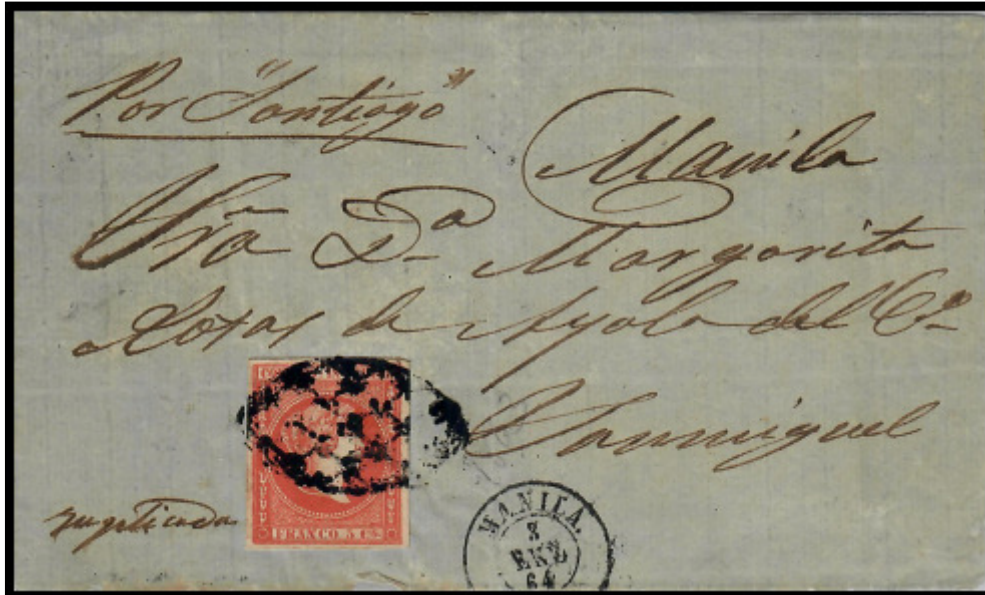 Por "Santiago"
Manila
Sra Da Margarita
Roxas de Ayala del Co
Sanmiguel
FRANCO 5 Cs
MANILA
3
ENE
64